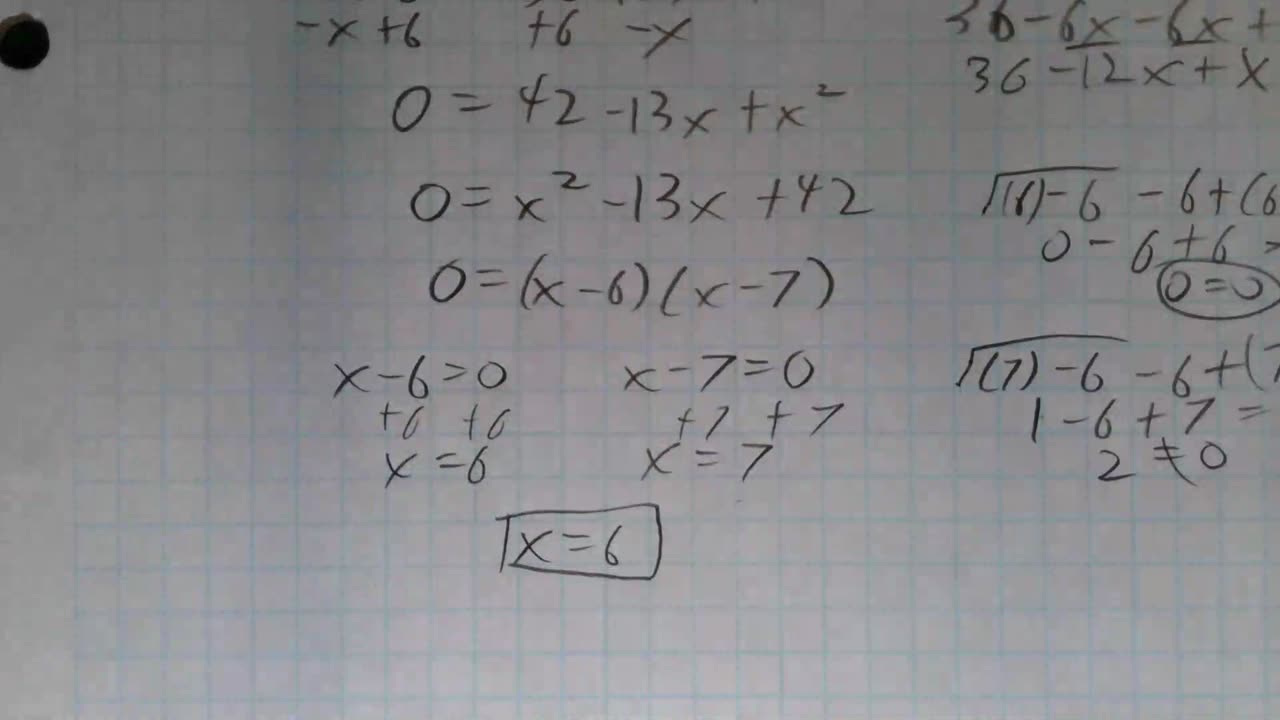 -x +6 +6 -x
0 = 42 -13x + x²
0 = x² -13x +42
0 = (x-6)(x-7)
x-6=0 x-7=0
+6 +6 +7 +7
x=6 x=7
x=6
36-6x-6x+
36-12x+x
√(6)-6 -6+(6
0-6+6
0=0
√(7)-6 -6+(7
1-6+7=
2≠0